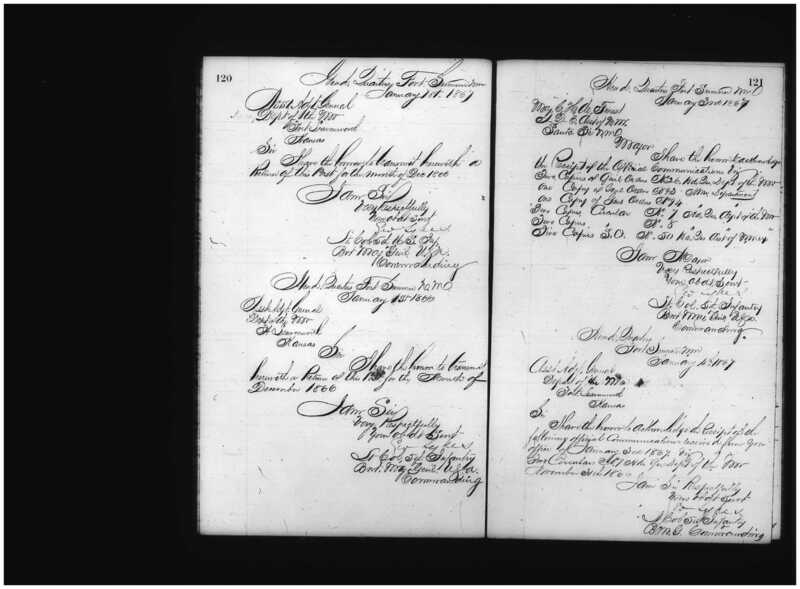 120
Head Quarters Fort Sumner NM
January 1st 1867
Asst Adjt General
Dept of the Mo
Fort Leavenworth
Kansas
Sir
I have the honor to transmit herewith a
Return of this Post for the month of Dec 1866
I am Sir
Very Respectfully
Your obdt Servt
Lt Col 5th U.S. Inf
Bvt Maj Genl U.S.A.
Commanding
Head Quarters Fort Sumner N.M.
January 1st 1866
Asst Adjt General
Dept of the Mo
Ft Leavenworth
Kansas
Sir
I have the honor to transmit
herewith a Return of this Post for the Month of
December 1866
I am Sir
Very Respectfully
Your obdt Servt
Lt Col 5th Infantry
Bvt Maj Genl U.S.A.
Commanding
121
Head Quarters Fort Sumner N.M.
January 3rd 1867
Maj C. H. De Forest
Santa Fe N.M.
Major
I have the honor to acknowledge
the Receipt of the Official Communications
Two Copies of Genl Orders
one Copy of
one Copy of
Two Copies Circular No 7
Two Copies No 8
Two Copies S.O. No 50
I am Major
Very Respectfully
Your obdt Servt
Lt Col 5th Infantry
Bvt Maj Genl U.S.A.
Commanding
Head Quarters
Fort Sumner NM
January 1867
Asst Adjt General
Dept of the Mo
Fort Leavenworth
Kansas
Sir
I have the honor to acknowledge the Receipt of the
following official Communication received from your
office January 3rd 1867
One Circular Dept of the Mo
November 1866
I am Sir Respectfully
Your obdt Servt
Lt Col 5th Infantry
B.M.G. Commanding